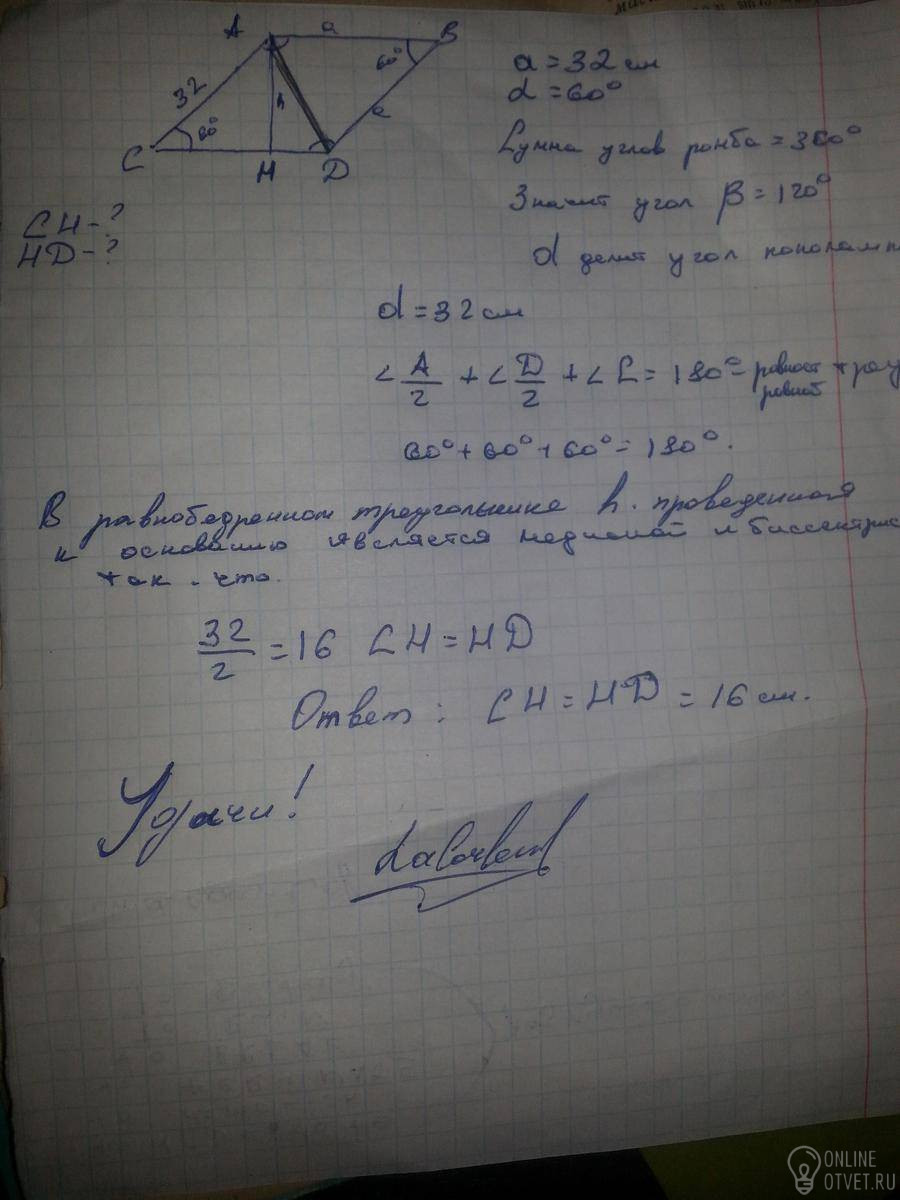 A a B
60°
32
h
a
60°
C H D
a = 32 см
α = 60°
Сумма углов ромба = 360°
Значит угол β = 120°
CH - ?
HD - ?
d делит угол пополам
d = 32 см
∠A/2 + ∠D/2 + ∠C = 180° -
60° + 60° + 60° = 180°.
В равнобедренном треугольнике h. проведенного
к основанию является медианой и биссектрис
так. что.
32/2 = 16 CH = HD
Ответ: CH = HD = 16 см.
Удачи!
ONLINE
OTVET.RU